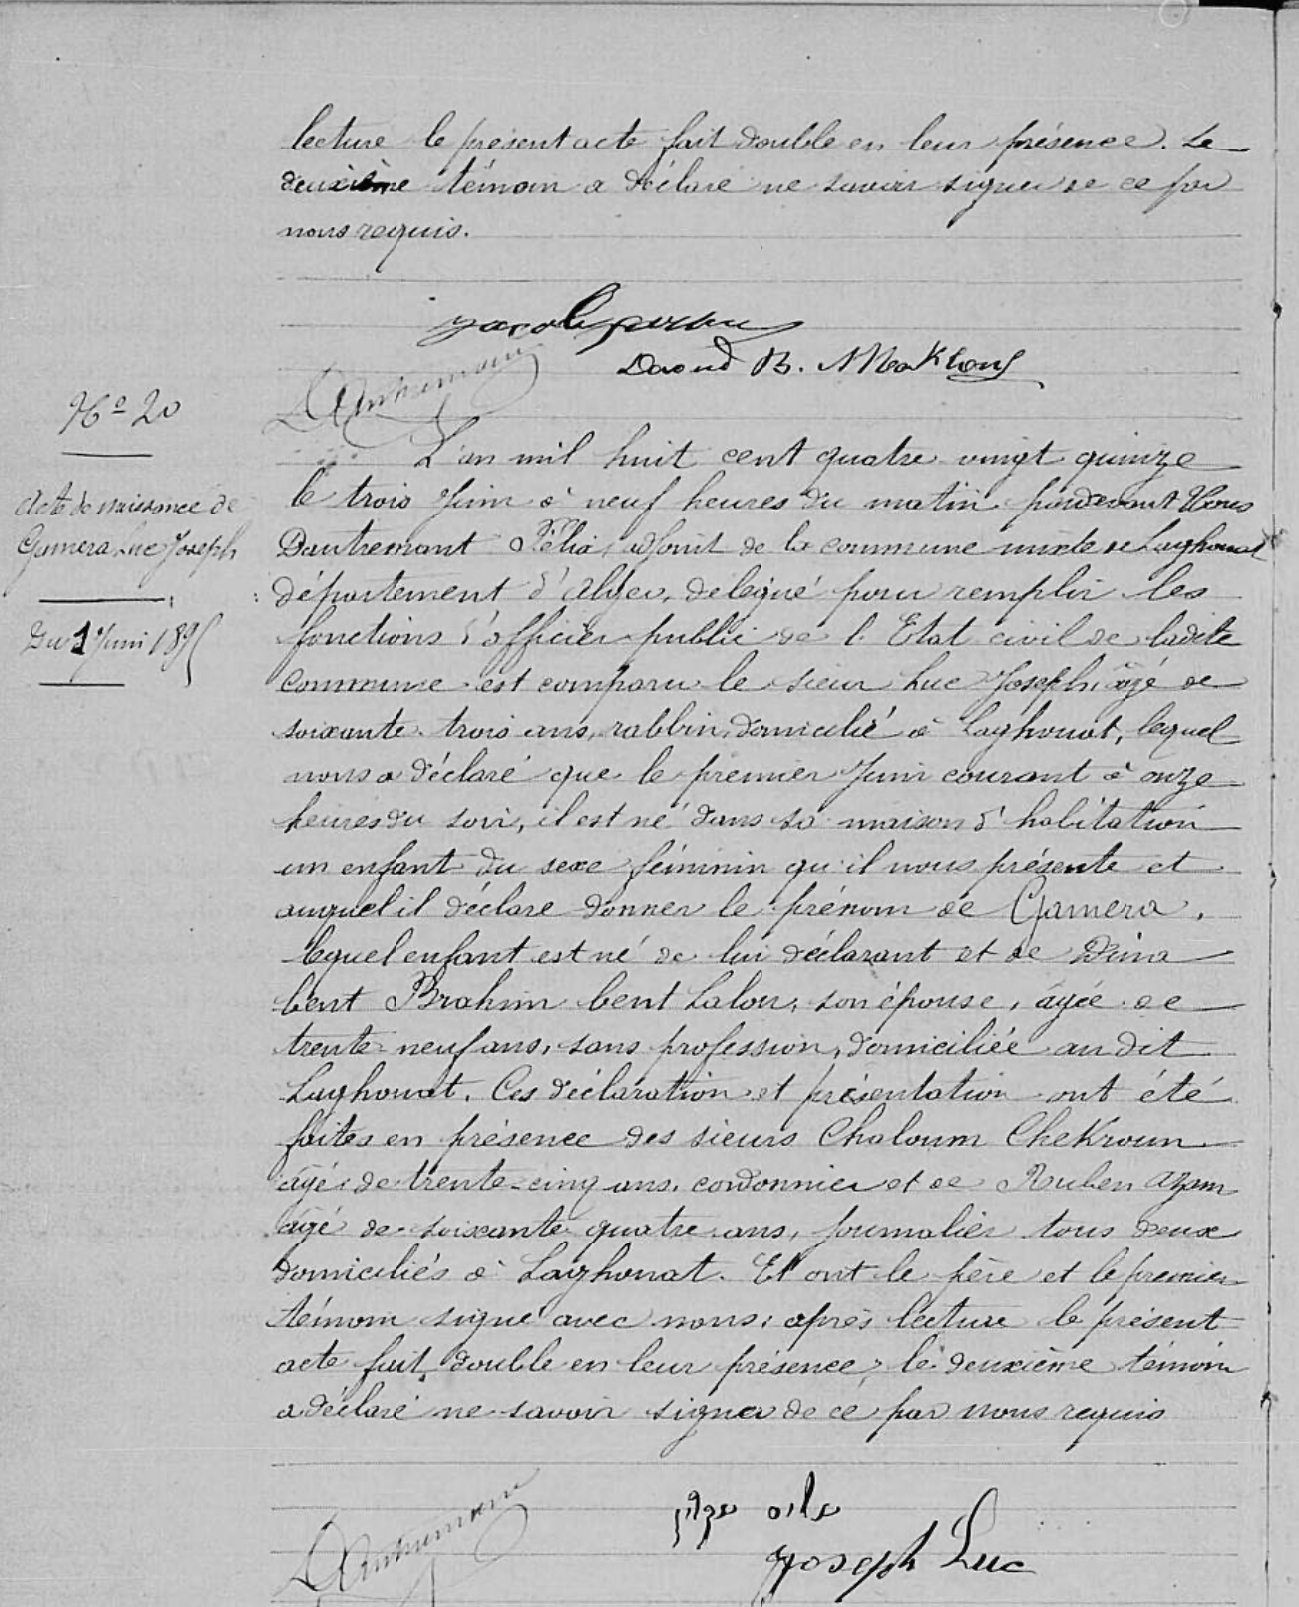 lecture le présent acte fait double en leur présence. Le
deuxième témoin a déclaré ne savoir signer de ce par
nous requis.
Daoud B. Makhlouf
Dautremant
N° 20
Acte de naissance de
Gamera Luc Joseph
Du 1 Juin 1895
L'an mil huit cent quatre vingt quinze
le trois Juin à neuf heures du matin pardevant Nous
Dautremant Félix, adjoint de la commune mixte de Laghouat
département d'Alger, délégué pour remplir les
fonctions d'officier public de l'Etat civil de ladite
commune est comparu le sieur Luc Joseph, âgé de
soixante trois ans, rabbin, domicilié à Laghouat, lequel
nous a déclaré que le premier Juin courant à onze
heures du soir, il est né dans sa maison d'habitation
un enfant du sexe féminin qu'il nous présente et
auquel il déclare donner le prénom de Gamera.
lequel enfant est né de lui déclarant et de Dina
bent Brahim bent Lalou, son épouse, âgée de
trente-neuf ans, sans profession, domiciliée au dit
Laghouat. Ces déclaration et présentation ont été
faites en présence des sieurs Chaloum CheKroun
âgé de trente-cinq ans, cordonnier et de Ruben Azam
âgé de soixante quatre ans, journalier tous deux
domiciliés à Laghouat. Et ont le père et le premier
témoin signé avec nous, après lecture le présent
acte fait double en leur présence, le deuxième témoin
a déclaré ne savoir signer de ce par nous requis
Dautremant
Joseph Luc